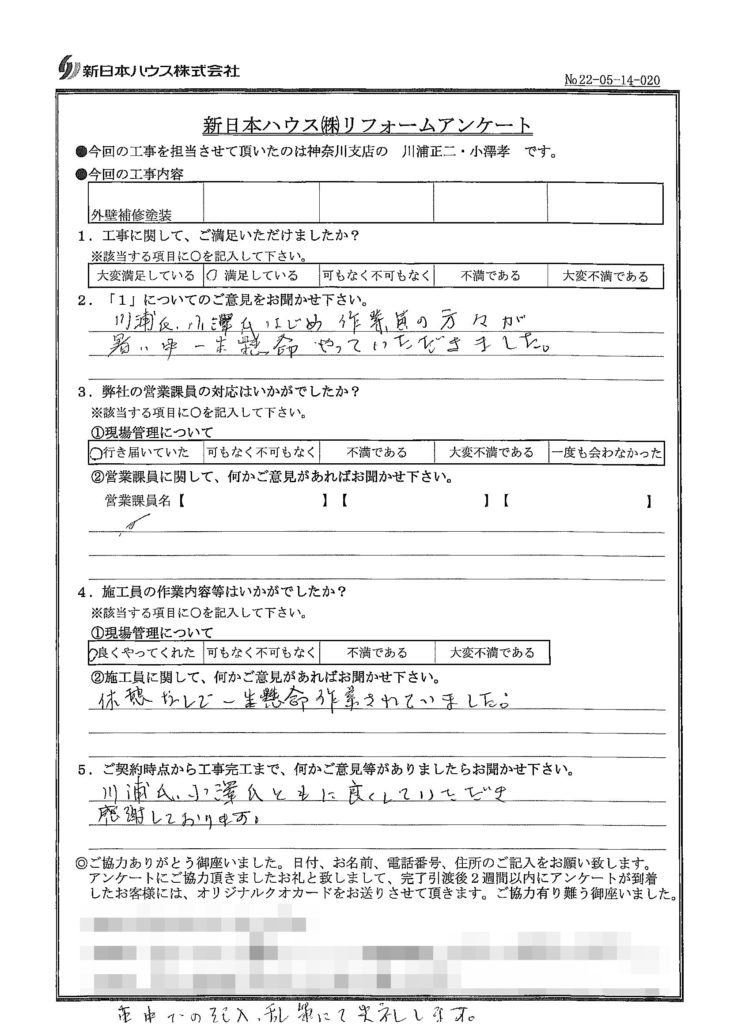 新日本ハウス株式会社
№22-05-14-020
新日本ハウス㈱リフォームアンケート
●今回の工事を担当させて頂いたのは神奈川支店の 川浦正二・小澤孝 です。
●今回の工事内容
外壁補修塗装
1．工事に関して、ご満足いただけましたか？
※該当する項目に○を記入して下さい。
大変満足している ○ 満足している 可もなく不可もなく 不満である 大変不満である
2．「1」についてのご意見をお聞かせ下さい。
川浦氏、小澤氏はじめ 作業員の方々が
暑い中 一生懸命 やっていただきました。
3．弊社の営業課員の対応はいかがでしたか？
※該当する項目に○を記入して下さい。
①現場管理について
○行き届いていた 可もなく不可もなく 不満である 大変不満である 一度も会わなかった
②営業課員に関して、何かご意見があればお聞かせ下さい。
営業課員名【 】【 】【 】
4．施工員の作業内容等はいかがでしたか？
※該当する項目に○を記入して下さい。
①現場管理について
○良くやってくれた 可もなく不可もなく 不満である 大変不満である
②施工員に関して、何かご意見があればお聞かせ下さい。
休憩なしで 一生懸命 作業されていました。
5．ご契約時点から工事完工まで、何かご意見等がありましたらお聞かせ下さい。
川浦氏、小澤氏ともに良くしていただき
感謝しております。
◎ご協力ありがとう御座いました。日付、お名前、電話番号、住所のご記入をお願い致します。
アンケートにご協力頂きましたお礼と致しまして、完了引渡後２週間以内にアンケートが到着
したお客様には、オリジナルクオカードをお送りさせて頂きます。ご協力有り難う御座いました。
車中での記入、乱筆にて失礼します。